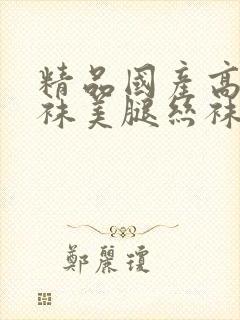 精品國産高
袜美腿丝袜
鄭麗瓊